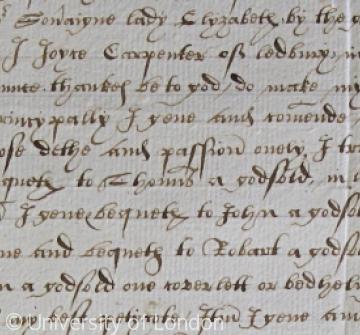 Sovaigne lady Elyzabeth by the g
I Joyce Carpenter of ledbury
thankes be to god, do make my
pryncypally I geve and comende
ose dethe and passion onely, I tr
queth to Thomas a godsold, in
I geve & bequeth to John a godso
ve and bequeth to Robart a godso
n a godsold one coverlett or bedheli
best peticote. Itm I geve and
© University of London